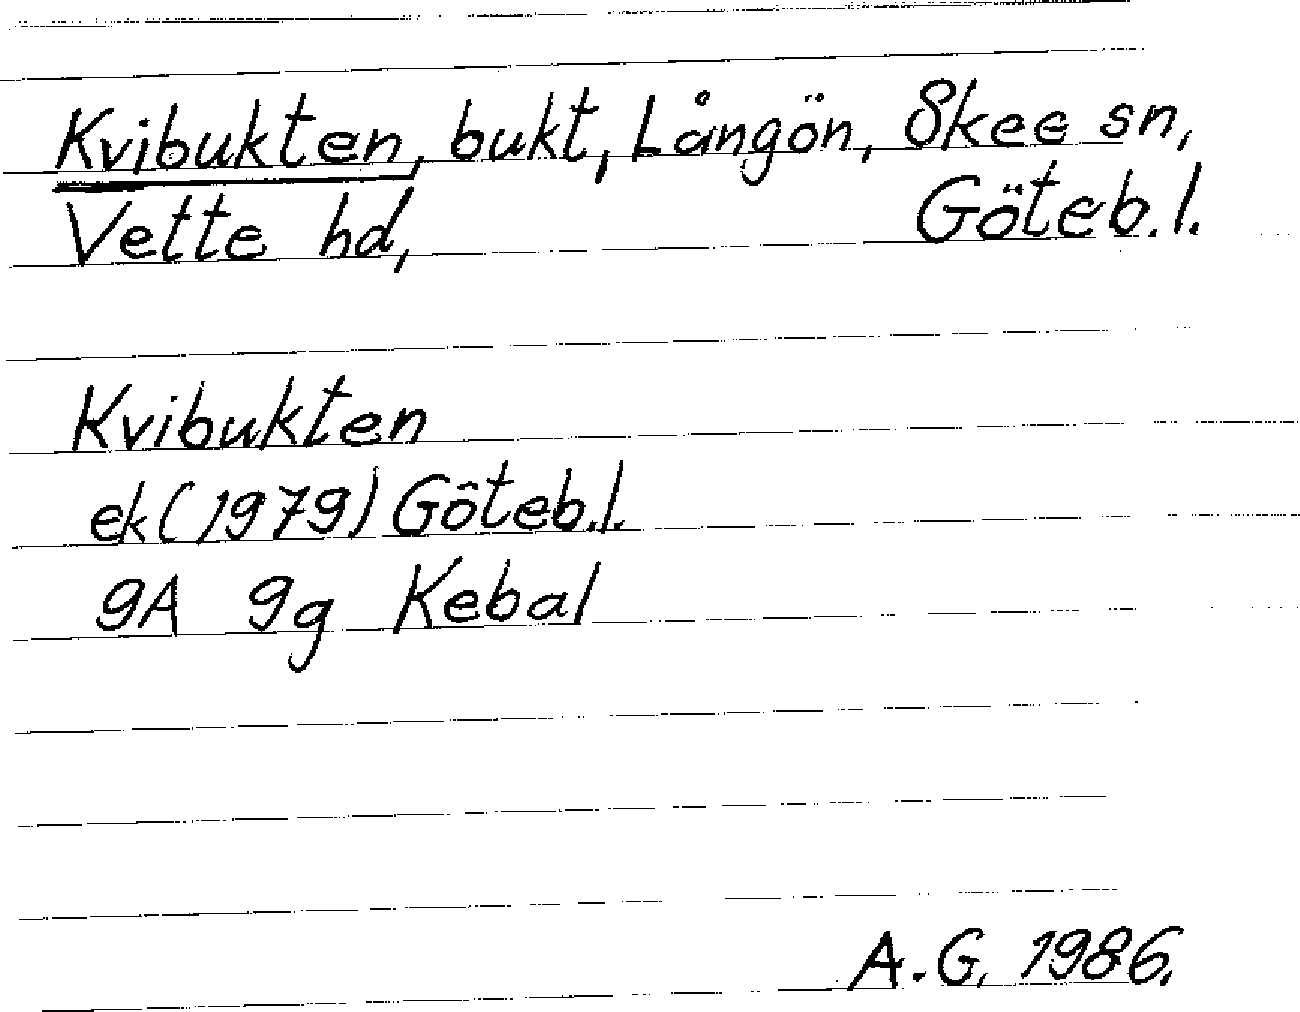 Kvibukten, bukt, Långön, Skee sn,
Vette hd, Göteb.l.
Kvibukten
ek(1979) Göteb.l.
9A 9g Kebal
A.G. 1986.